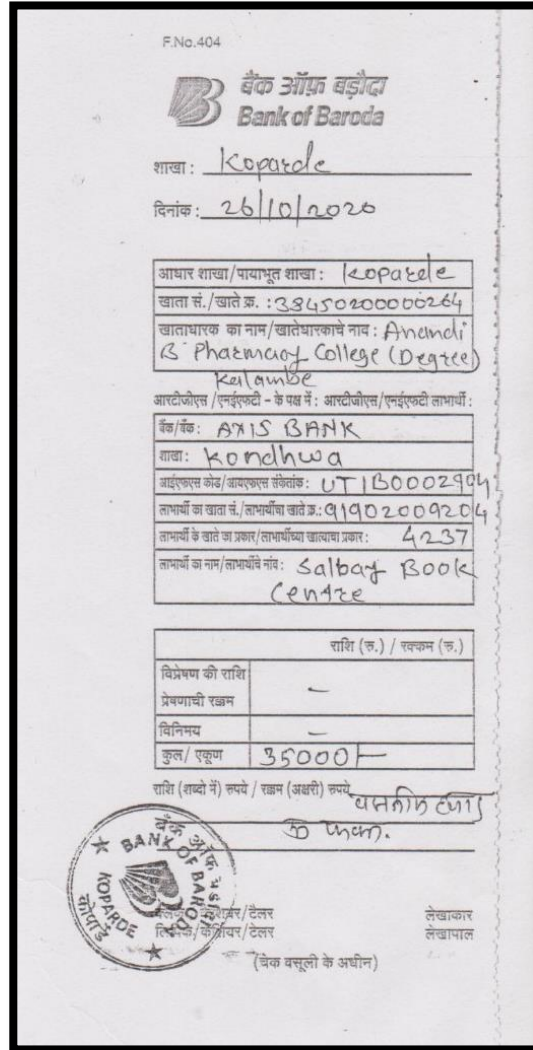 F.No.404
बैंक ऑफ़ बड़ौदा
Bank of Baroda
शाखा : Koparde
दिनांक : 26/10/2020
आधार शाखा/पायाभूत शाखा : Koparde
खाता सं./खाते क्र. : 38450200000264
खाताधारक का नाम/खातेधारकाचे नाव : Anandi
B Pharmacy College (Degree)
Kalambe
आरटीजीएस/एनईएफटी - के पक्ष में : आरटीजीएस/एनईएफटी लाभार्थी :
बैंक/बँक : AXIS BANK
शाखा : Kondhwa
आईएफएस कोड/आयएफएस संकेतांक : UTIB0002904
लाभार्थी का खाता सं./लाभार्थीचा खाते क्र.: 91902009204
लाभार्थी के खाते का प्रकार/लाभार्थीच्या खात्याचा प्रकार : 4237
लाभार्थी का नाम/लाभार्थीचे नांव : Salbay Book
Centre
राशि (रु.) / रक्कम (रु.)
विप्रेषण की राशि
प्रेषणाची रक्कम –
विनिमय –
कुल/ एकूण 35000/-
राशि (शब्दो में) रुपये / रक्कम (अक्षरी) रुपये
बैंक ऑफ़ बड़ौदा
BANK OF BARODA
KOPARDE
कोपार्डे
लिपिक/कैशियर/टैलर लेखाकार
लिपिक/कॅशियर/टेलर लेखापाल
(चेक वसूली के अधीन)